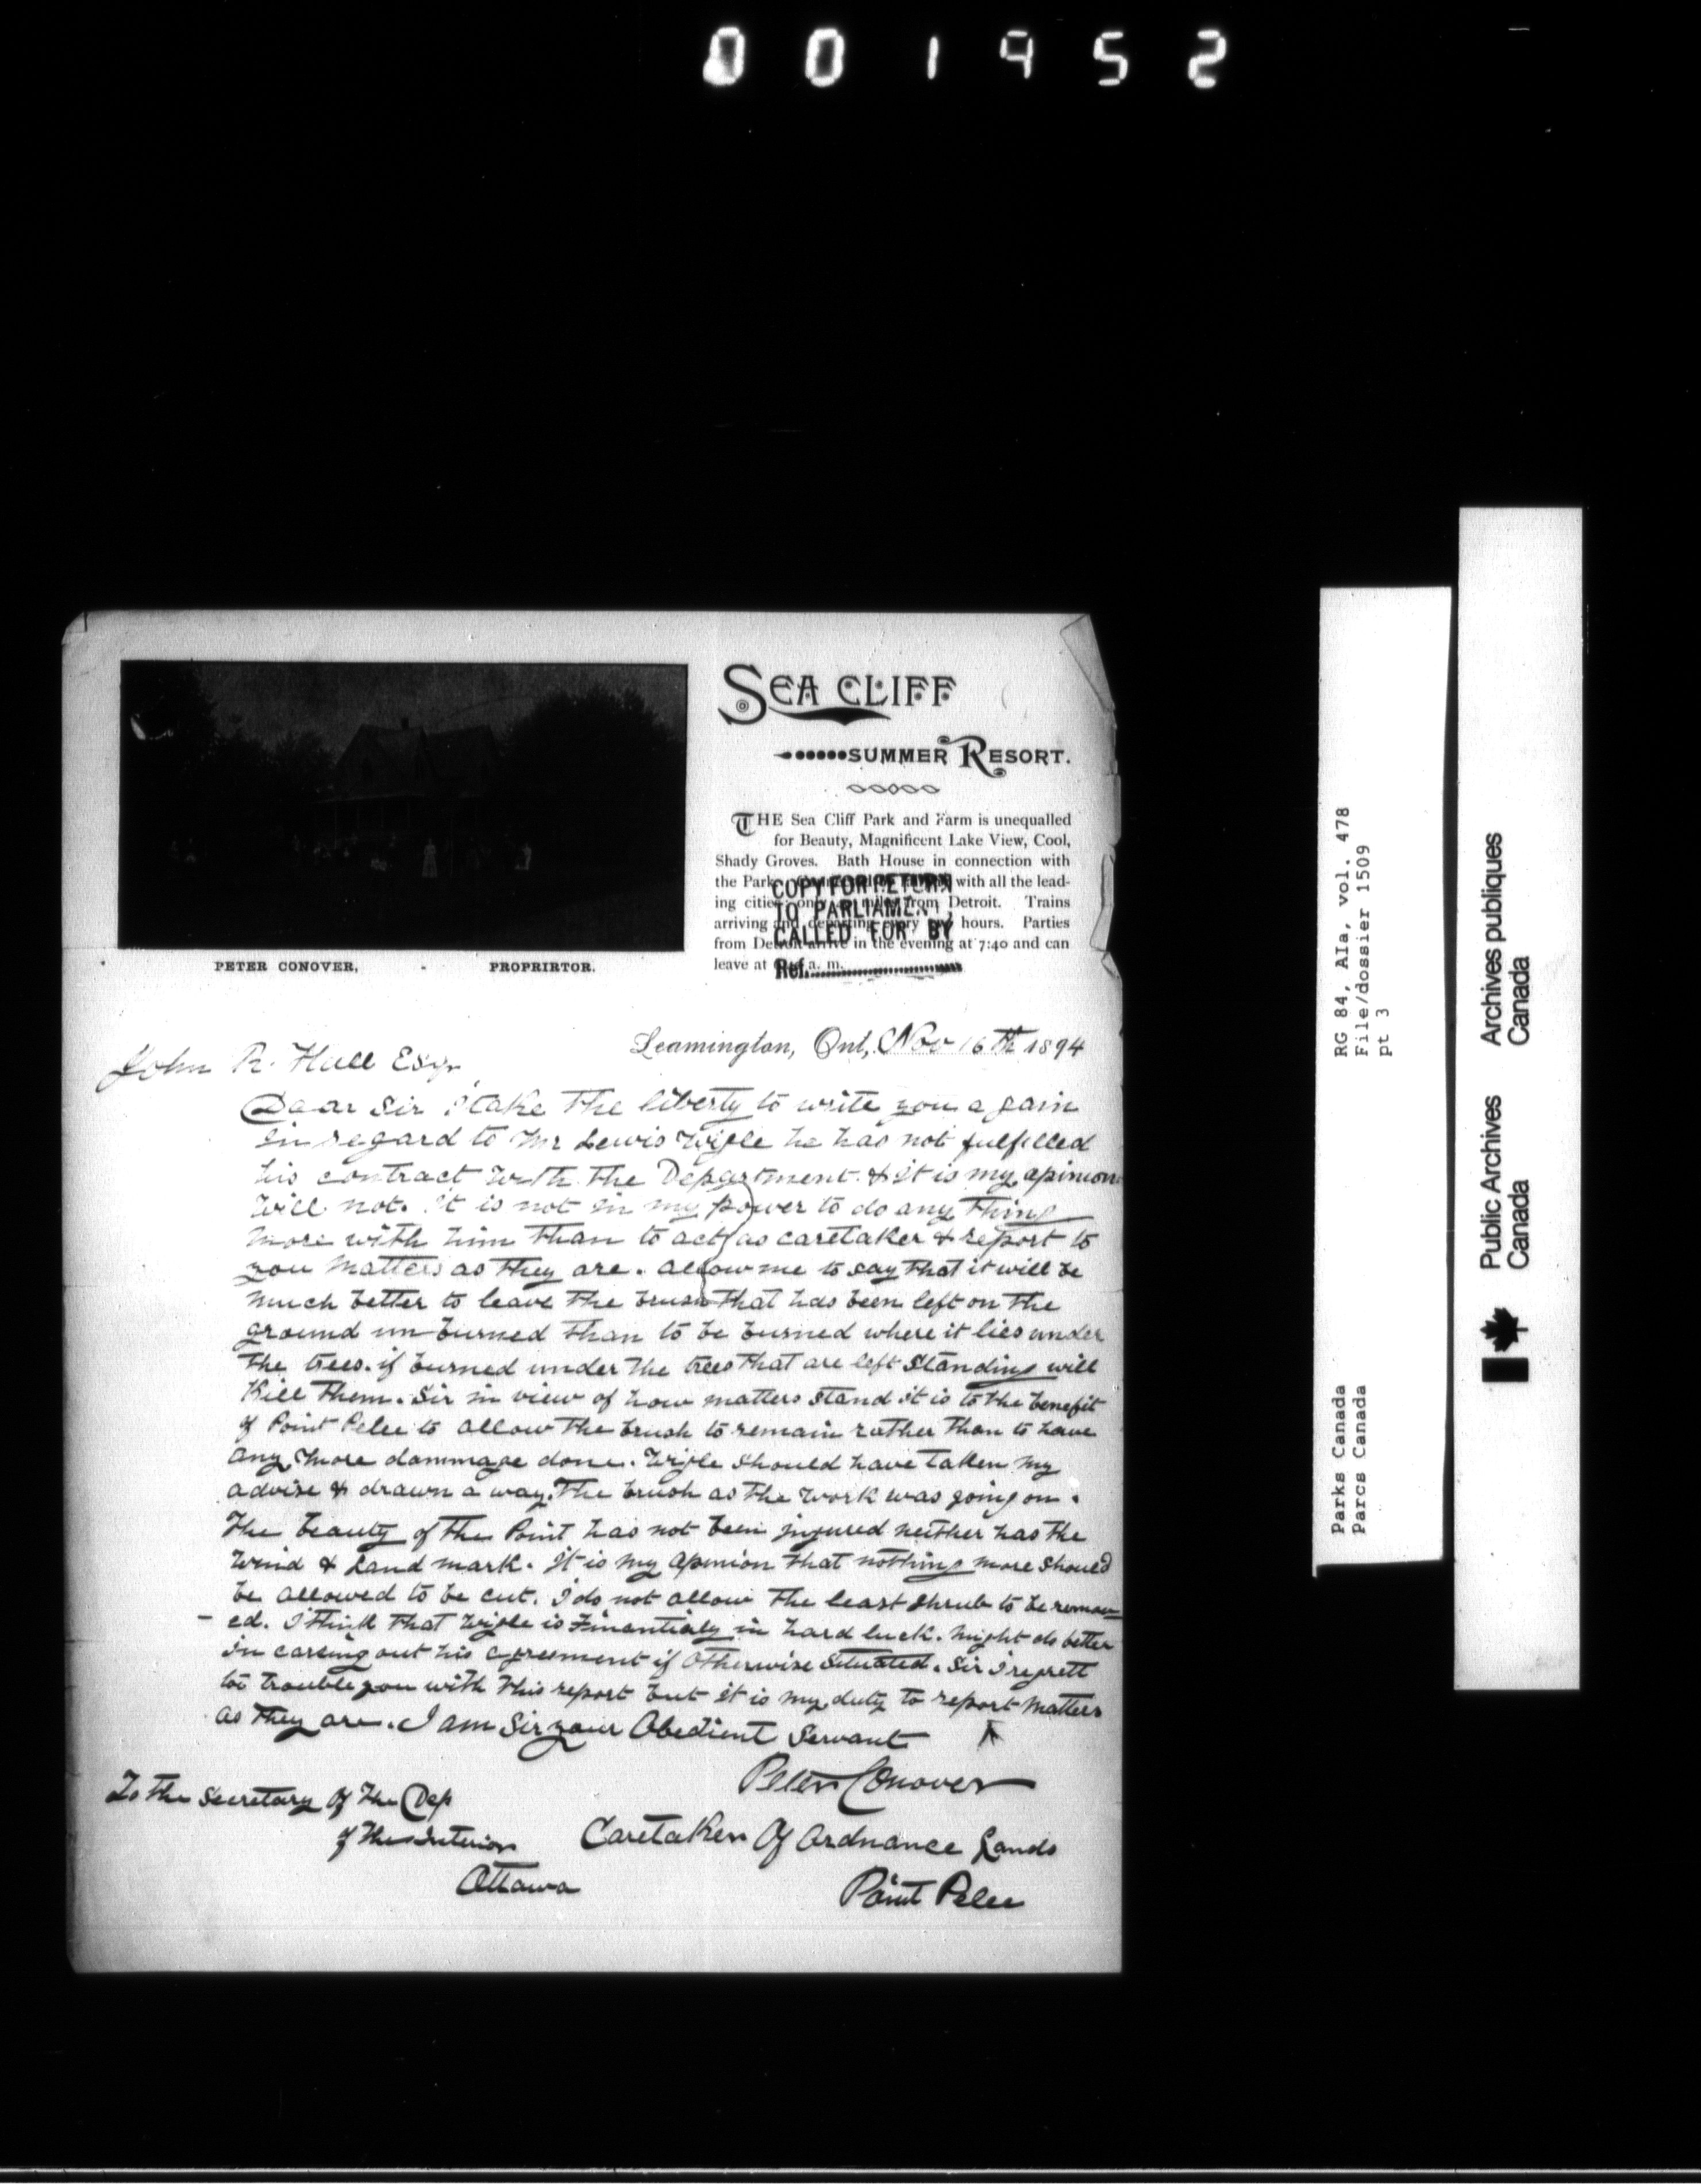 001952
SEA CLIFF
SUMMER RESORT.
THE Sea Cliff Park and Farm is unequalled
for Beauty, Magnificent Lake View, Cool,
Shady Groves. Bath House in connection with
the Park. with all the lead-
ing cities; only miles from Detroit. Trains
arriving and departing every hours. Parties
from Detroit arrive in the evening at 7:40 and can
leave at a. m.
COPY FOR RETURN
TO PARLIAMENT,
CALLED FOR BY
Ref.
PETER CONOVER, - PROPRIRTOR.
Leamington, Ont, Nov 16th 1894
John R. Hall Esqr
Dear Sir I take the liberty to write you a gain
in regard to Mr Lewis Wigle he has not fulfilled
his contract with the Department. & it is my opinion
will not. it is not in my power to do any thing
more with him than to act as caretaker & report to
you matters as they are. allow me to say that it will be
much better to leave the brush that has been left on the
ground un burned than to be burned where it lies under
the trees. if burned under the trees that are left standing will
kill them. Sir in view of how matters stand it is to the benefit
of Point Pelee to allow the brush to remain rather than to have
any more dammage done. Wigle should have taken my
advise & drawn a way the brush as the work was going on.
The beauty of the Point has not been injured neither has the
wind & Land mark. It is my opinion that nothing more should
be allowed to be cut. I do not allow the least shrub to be remov
- ed. I think that Wigle is Financialy in hard luck. might do better
in careing out his agreement if otherwise situated. Sir I regrett
to trouble you with this report but it is my duty to report matters
as they are. I am Sir your Obedient Servant
Peter Conover
To the Secretary Of The Dep
of the Interior
Caretaker Of Ordnance Lands
Ottawa
Point Pelee
Parks Canada RG 84, AIa, vol. 478
Parcs Canada File/dossier 1509
pt 3
Public Archives Archives publiques
Canada Canada